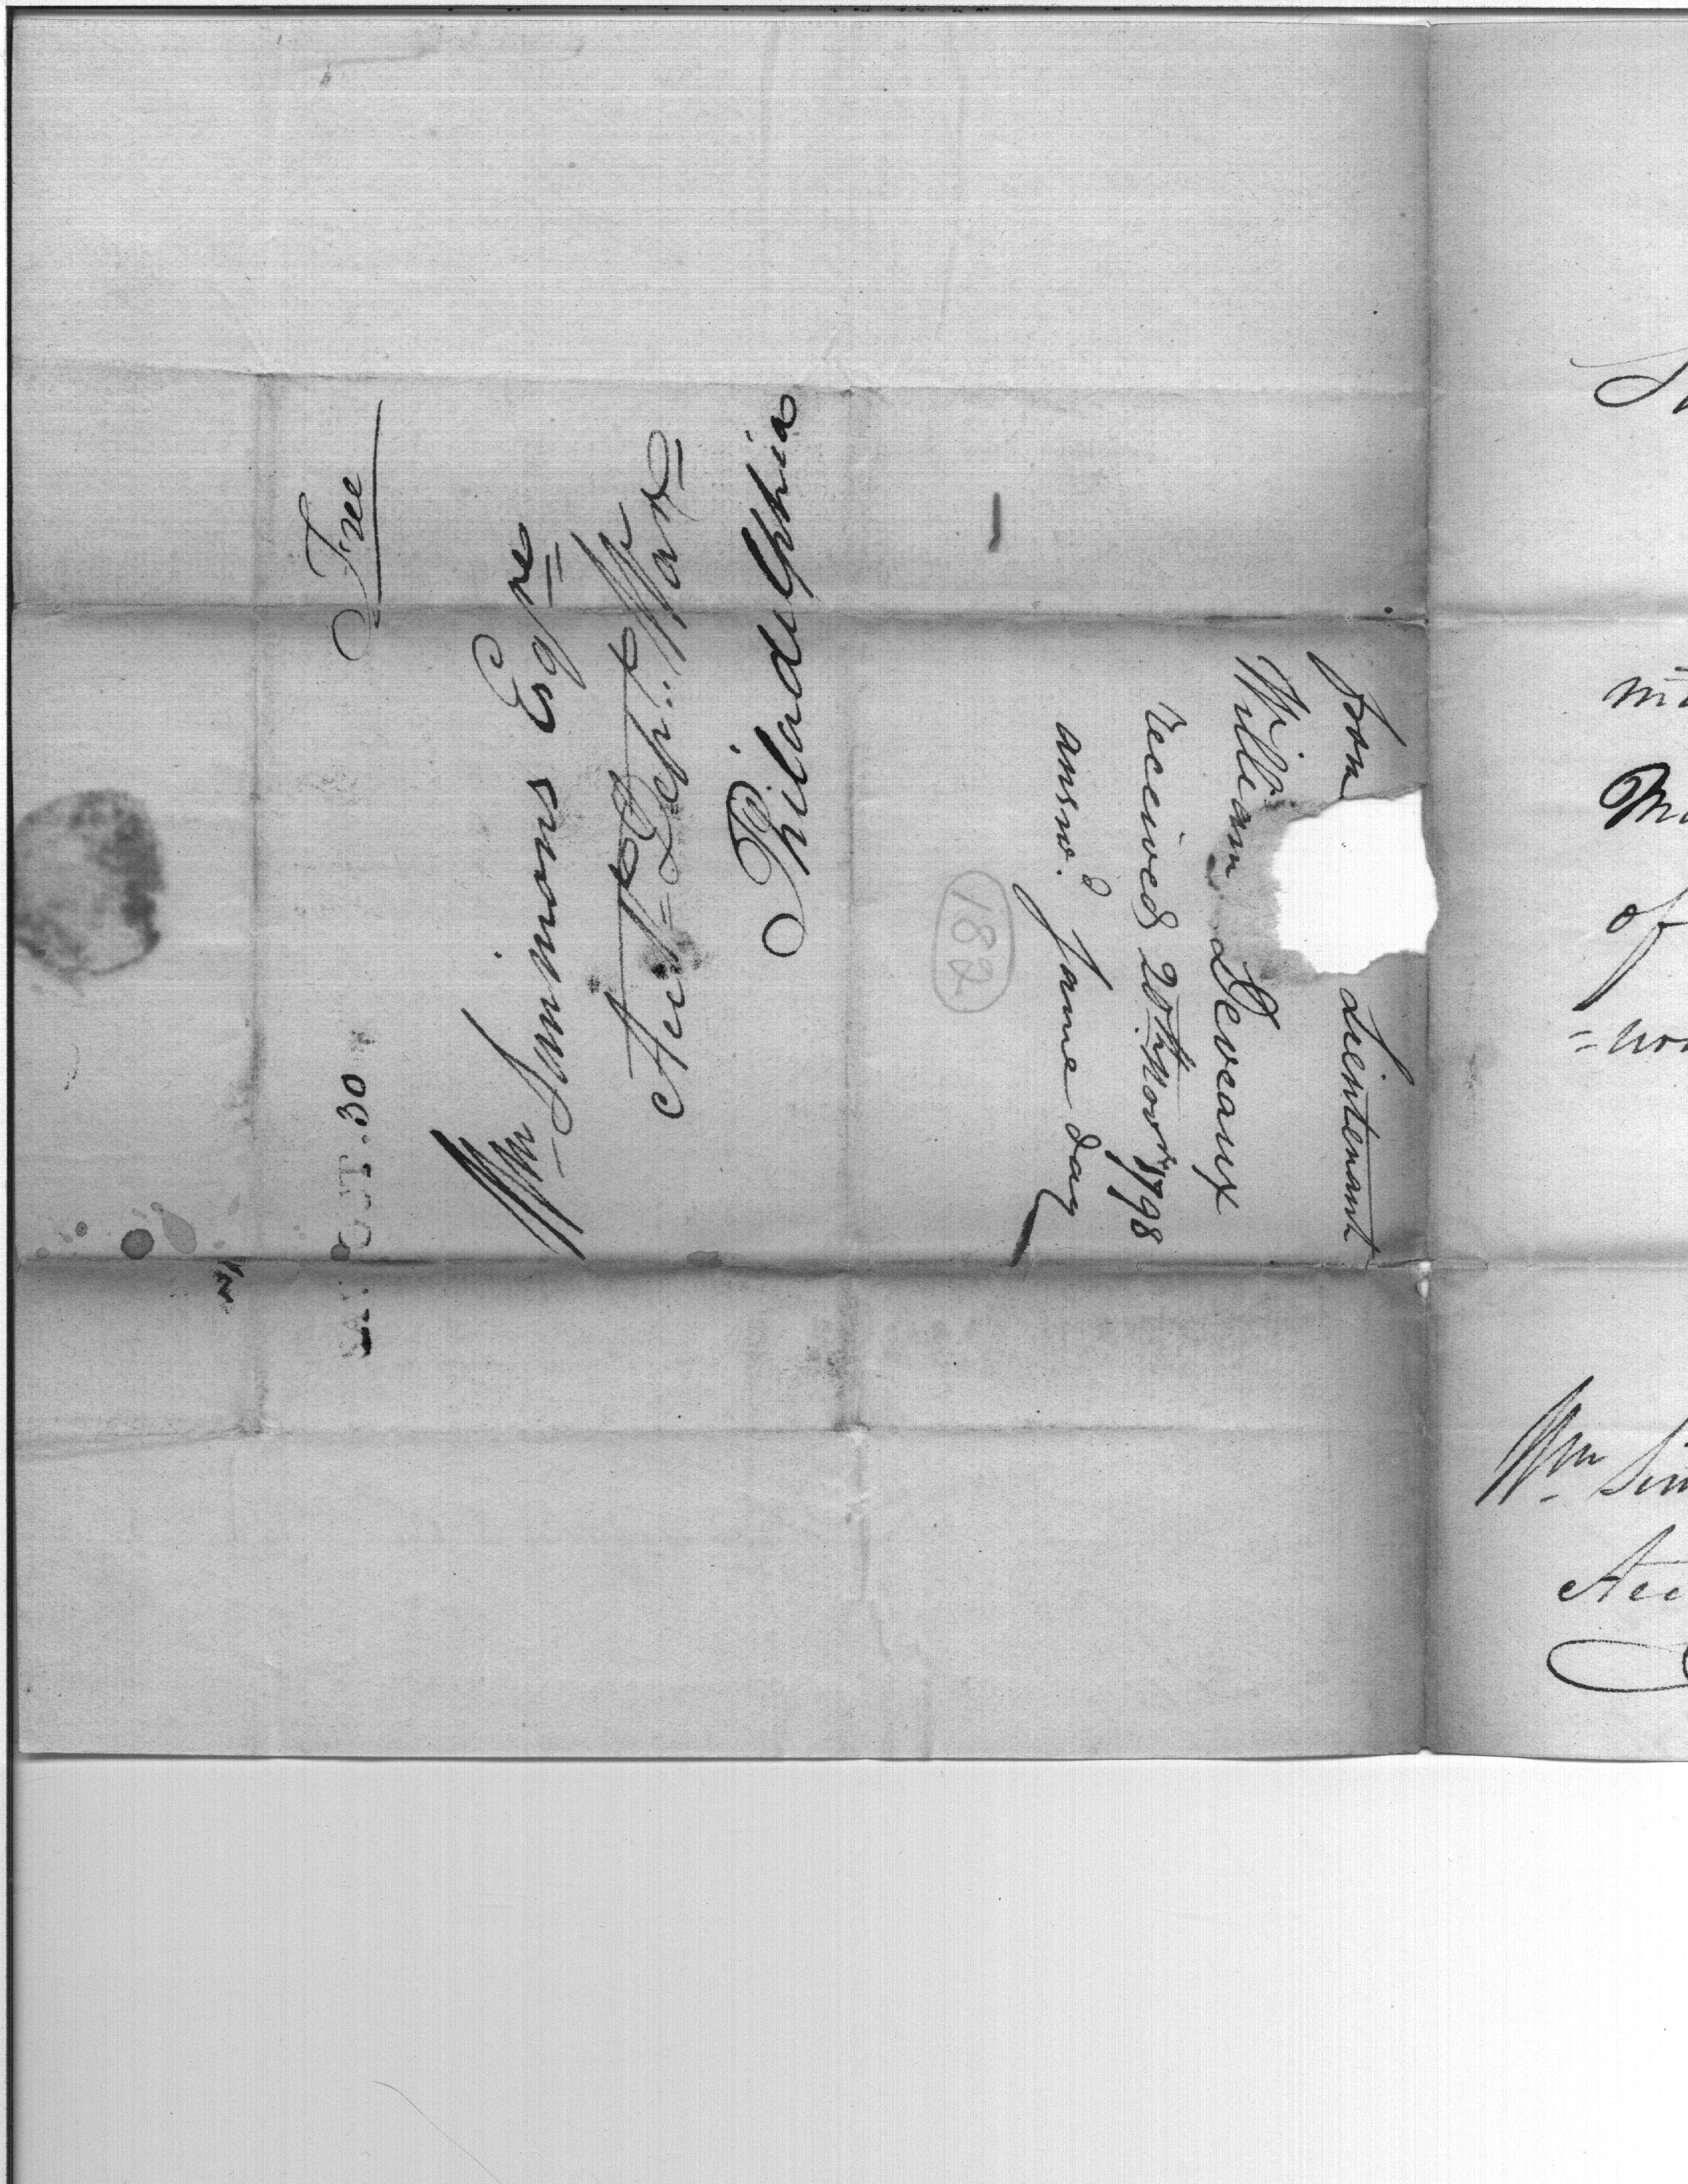 Free
SAV. OCT. 30
Wm Simmons Esqre
Acct Dept. War
Philadelphia
from Lieutenant
William Deveaux
received 20th Novr 1798
answd. same day
182
of
Wm Sim
Acc